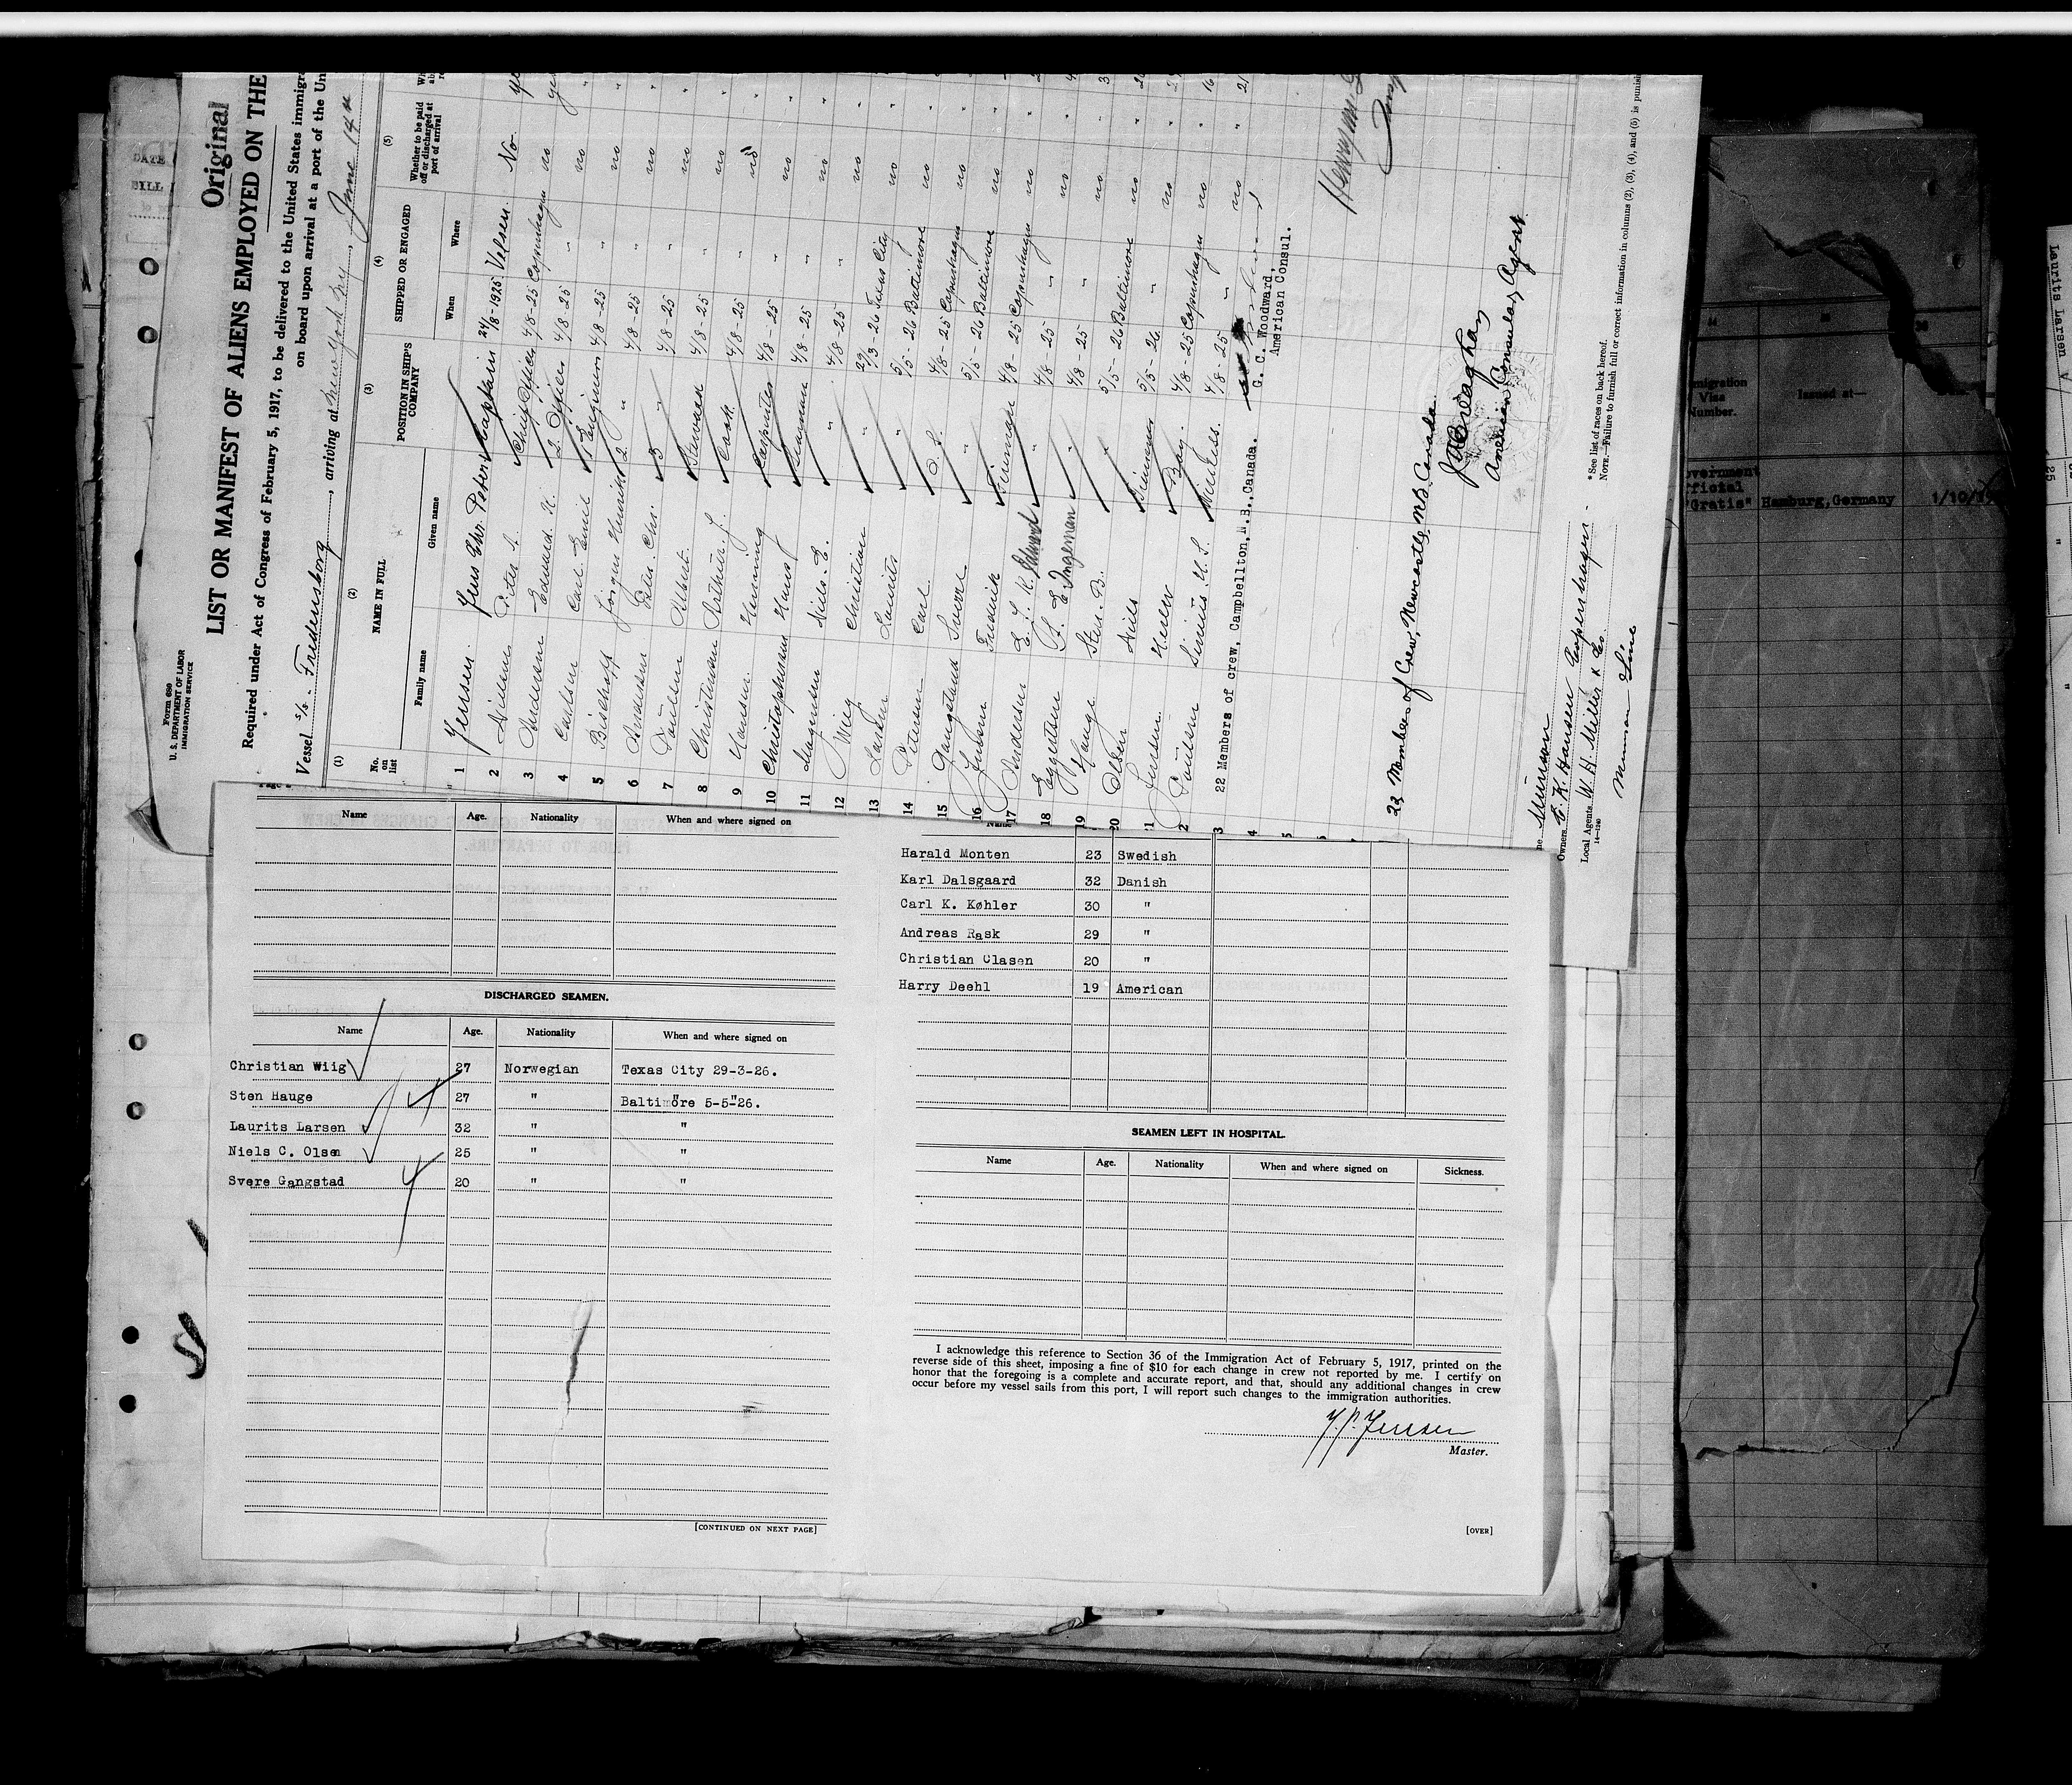 Original
LIST OR MANIFEST OF ALIENS EMPLOYED ON THE
Required under Act of Congress of February 5, 1917, to be delivered to the United States immigra
on board upon arrival at a port of the Un
Form 680
U. S. DEPARTMENT OF LABOR
IMMIGRATION SERVICE
Vessel S/S. Frederiksborg, arriving at New York N.Y., June 14
(1) (2) (3) (4) (5)
No. on list
NAME IN FULL
Family name Given name
POSITION IN SHIP'S COMPANY
SHIPPED OR ENGAGED
When Where
Whether to be paid off or discharged at port of arrival
1 Jensen. Jens Chr. Peter Captain 24/8-1925 Velsen. No
2 Nielsen Peter Chief Officer 4/8-25 Copenhagen no yes
3 Andersen Edvard. K. 2. Officer 4/8-25 " no "
4 Carlsen Carl Emil 1 Engineer 4/8-25 " no "
5 Bischoff Jørgen Henrik 2 " 4/8-25 " no "
6 Andersen Peter Chr. 3 " 4/8-25 " no "
7 Poulsen Albert. Steward 4/8-25 " no "
8 Christensen Arthur. J. Cook. 4/8-25 " no "
9 Hansen. Henning Carpenter 4/8-25 " no "
10 Christophersen Hans Seaman 4/8-25 " no "
11 Mogensen Niels. E. " 4/8-25 " no "
12 Wiig Christian " 29/3-26 Texas City no "
13 Larsen Laurits O.S. 5/5-26 Baltimore no "
14 Petersen Carl " 4/8-25 Copenhagen no "
15 Gangstad Sverre 5/5-26 Baltimore no "
16 Jensen Frederik Fireman 4/8-25 Copenhagen no "
17 Andersen E. J. K. Edvard " 4/8-25 " no "
18 Eggertsen P. E. Ingeman " 4/8-25 " no "
19 Hauge Sten. B. " 5/5-26 Baltimore no "
20 Olsen Niels 5/5-26 " no "
Jensen. Boy. 4/8-25 Copenhagen no "
Poulsen 4/8-25 " no "
22 Members of crew, Campbellton, N.B., Canada.
G. C. Woodward,
American Consul.
22 Members of Crew, Newcastle, N.B. Canada.
American Consular Agent
Munson
Owners O. K. Hansen Copenhagen
Local Agents W. H. Miller & Co
Munson Line
*See list of races on back hereof.
NOTE.—Failure to furnish full or correct information in columns (2), (3), (4), and (5) is punis
Name Age. Nationality When and where signed on
DISCHARGED SEAMEN.
Name Age. Nationality When and where signed on
Christian Wiig 27 Norwegian Texas City 29-3-26.
Sten Hauge 27 " Baltimore 5-5-26.
Laurits Larsen 32 " "
Niels C. Olsen 25 " "
Svere Gangstad 20 " "
[CONTINUED ON NEXT PAGE]
Harald Monten 23 Swedish
Karl Dalsgaard 32 Danish
Carl K. Køhler 30 "
Andreas Rask 29 "
Christian Clasen 20 "
Harry Deehl 19 American
SEAMEN LEFT IN HOSPITAL.
Name Age. Nationality When and where signed on Sickness.
I acknowledge this reference to Section 36 of the Immigration Act of February 5, 1917, printed on the
reverse side of this sheet, imposing a fine of $10 for each change in crew not reported by me. I certify on
honor that the foregoing is a complete and accurate report, and that, should any additional changes in crew
occur before my vessel sails from this port, I will report such changes to the immigration authorities.
J. P. Jensen
Master.
[OVER]
migration Visa Number.
Issued at—
overnment
fficial
"Gratis" Hamburg, Germany 1/10/
Laurits Larsen
25